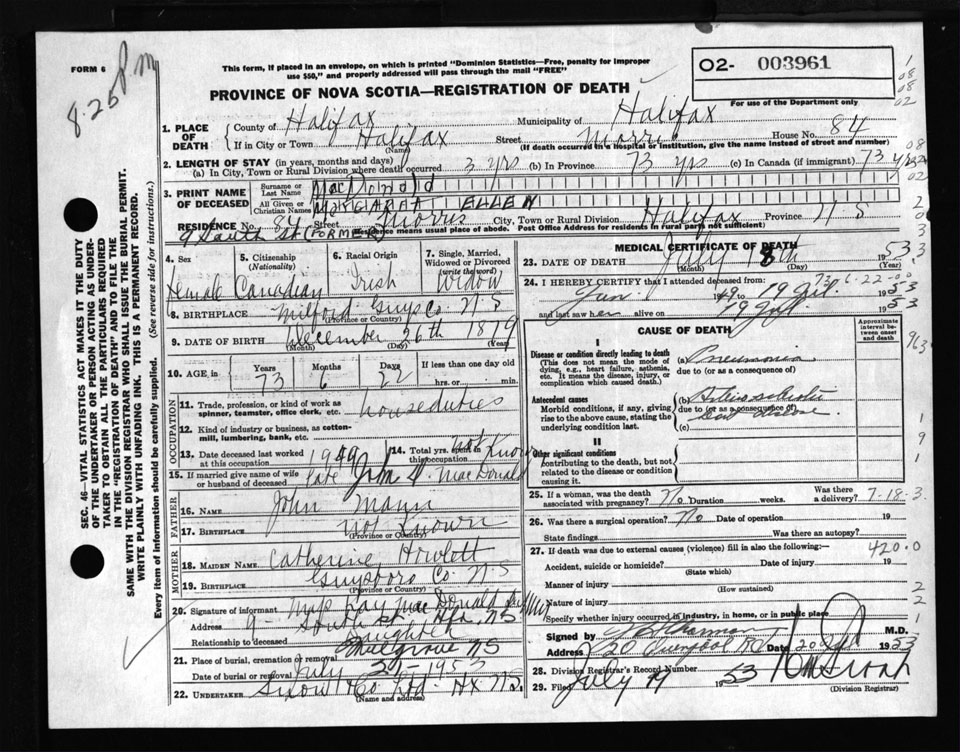 FORM 6
8.25 PM
This form, if placed in an envelope, on which is printed "Dominion Statistics—Free, penalty for improper
use $50," and properly addressed will pass through the mail "FREE"
O2- 003961
PROVINCE OF NOVA SCOTIA—REGISTRATION OF DEATH
For use of the Department only
1. PLACE OF DEATH
County of Halifax Municipality of Halifax
If in City or Town Halifax Street Morris House No. 84
(Name) (If death occurred in a hospital or institution, give the name instead of street and number)
2. LENGTH OF STAY (in years, months and days)
(a) In City, Town or Rural Division where death occurred 3 yrs (b) In Province 73 yrs (c) In Canada (if immigrant) 73 yrs
3. PRINT NAME OF DECEASED
Surname or Last Name MacDonald
All Given or Christian Names MARGARET ELLEN
RESIDENCE No. 84 Street Morris City, Town or Rural Division Halifax Province N S
9 South St (Former) Residence means usual place of abode. Post Office Address for residents in rural parts not sufficient)
4. Sex Female
5. Citizenship (Nationality) Canadian
6. Racial Origin Irish
7. Single, Married, Widowed or Divorced (write the word) Widow
8. BIRTHPLACE Milford Guys Co. N.S
(Province or Country)
9. DATE OF BIRTH December 26th 1879
(Month) (Day) (Year)
10. AGE in Years 73 Months 6 Days 22 If less than one day old hrs. or min.
OCCUPATION
11. Trade, profession, or kind of work as spinner, teamster, office clerk, etc. house duties
12. Kind of industry or business, as cotton-mill, lumbering, bank, etc.
13. Date deceased last worked at this occupation 1949
14. Total yrs. spent in this occupation not known
15. If married give name of wife or husband of deceased Late John D. MacDonald
FATHER
16. NAME John Mann
17. BIRTHPLACE Not Known
(Province or Country)
MOTHER
18. MAIDEN NAME Catherine Howlott
19. BIRTHPLACE Guysboro Co. N.S
(Province or Country)
20. Signature of informant Miss Kay MacDonald
Address 9 - South St Hfx, NS
Relationship to deceased Daughter
21. Place of burial, cremation or removal Mulgrave NS
Date of burial or removal July 20 - 1953
22. UNDERTAKER Snow & Co Ltd. Hx N.S.
(Name and address)
MEDICAL CERTIFICATE OF DEATH
23. DATE OF DEATH July 18th 1953
(Month) (Day) (Year)
24. I HEREBY CERTIFY that I attended deceased from:
Jan. 19 to 19 1953
and last saw her alive on 19 1953
CAUSE OF DEATH
Approximate interval between onset and death
I
Disease or condition directly leading to death
(This does not mean the mode of dying, e.g., heart failure, asthenia, etc. It means the disease, injury, or complication which caused death.)
(a) Pneumonia
due to (or as a consequence of)
Antecedent causes
Morbid conditions, if any, giving rise to the above cause, stating the underlying condition last.
(b)
due to (or as a consequence of)
(c)
II
Other significant conditions
contributing to the death, but not related to the disease or condition causing it.
25. If a woman, was the death associated with pregnancy? No Duration weeks. Was there a delivery? 7-18-3
26. Was there a surgical operation? No Date of operation 19
State findings Was there an autopsy?
27. If death was due to external causes (violence) fill in also the following:- 420.0
Accident, suicide or homicide? Date of injury 19
(State which)
Manner of injury
(How sustained)
Nature of injury
Specify whether injury occurred in industry, in home, or in public place
Signed by M.D.
Address 20 Date 20 1953
28. Division Registrar's Record Number
29. Filed July 19 1953
(Division Registrar)
SEC. 46—VITAL STATISTICS ACT MAKES IT THE DUTY
OF THE UNDERTAKER OR PERSON ACTING AS UNDER-
TAKER TO OBTAIN ALL THE PARTICULARS REQUIRED
IN THE "REGISTRATION OF DEATH" AND TO FILE THE
SAME WITH THE DIVISION REGISTRAR WHO SHALL ISSUE THE BURIAL PERMIT.
WRITE PLAINLY WITH UNFADING INK. THIS IS A PERMANENT RECORD.
Every item of information should be carefully supplied. (See reverse side for instructions.)